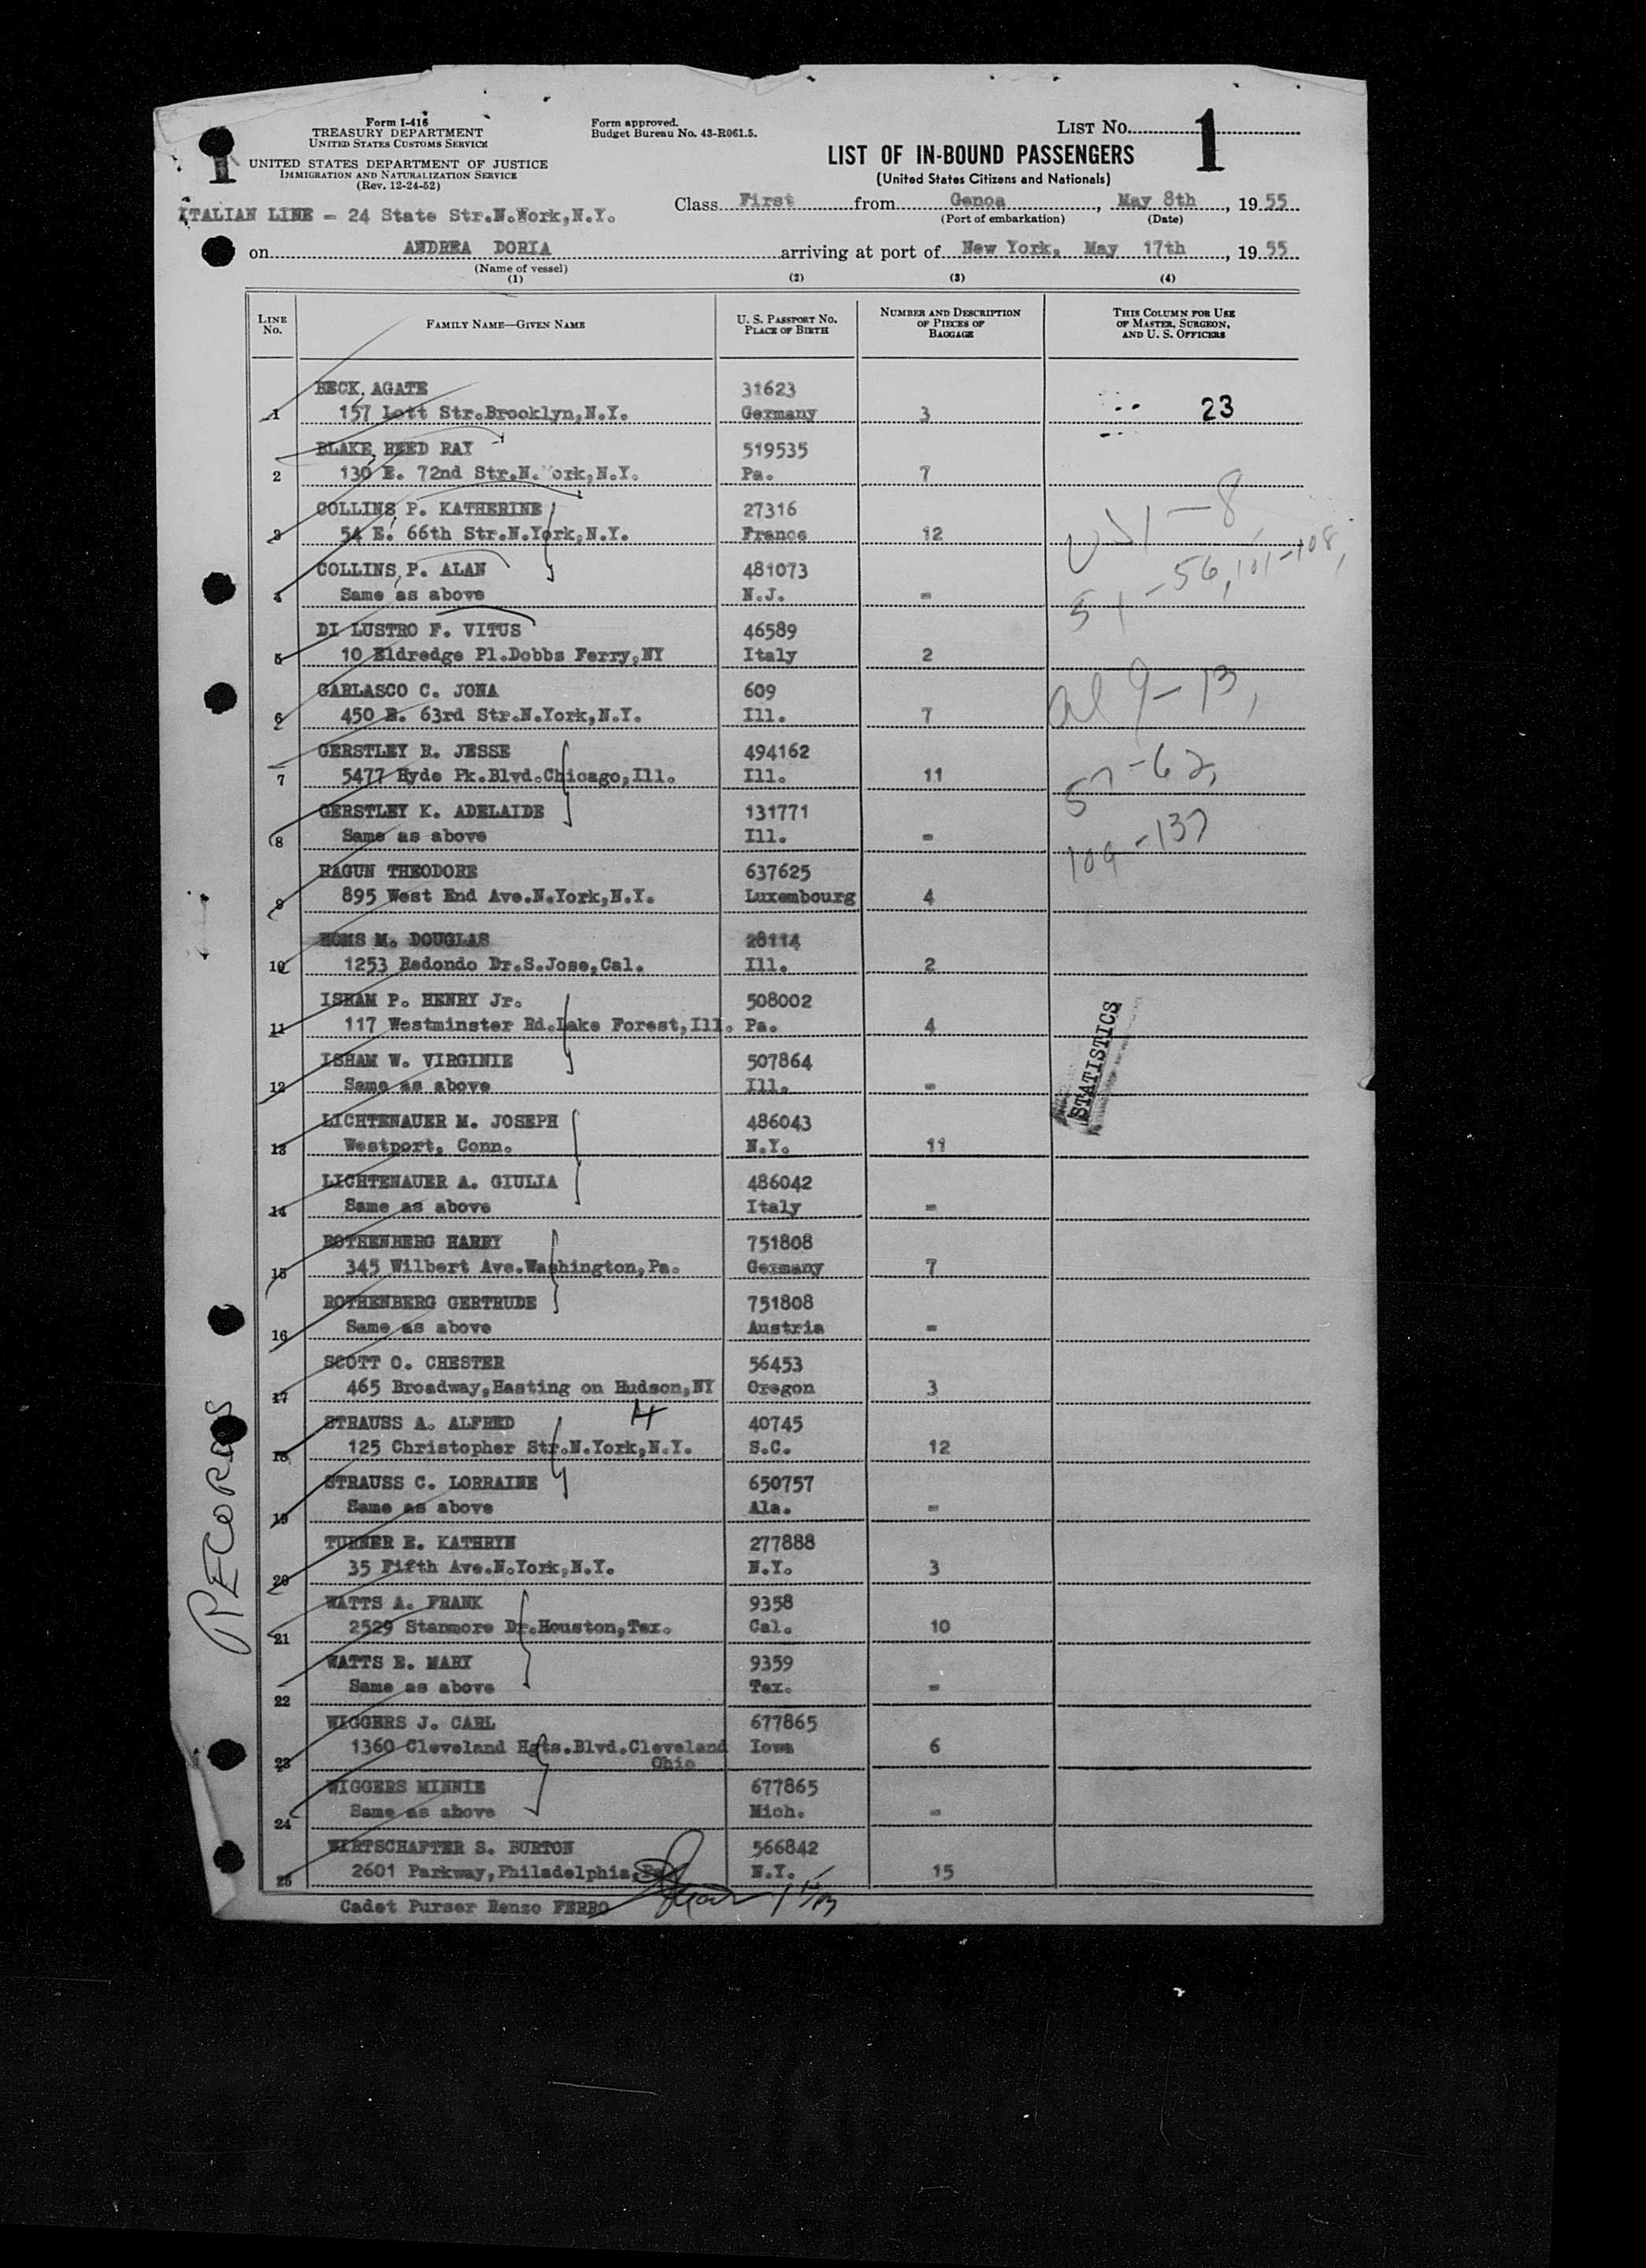 Form I-416
TREASURY DEPARTMENT
UNITED STATES CUSTOMS SERVICE
UNITED STATES DEPARTMENT OF JUSTICE
IMMIGRATION AND NATURALIZATION SERVICE
(Rev. 12-24-52)
Form approved.
Budget Bureau No. 43-R061.5.
LIST No. 1
LIST OF IN-BOUND PASSENGERS
(United States Citizens and Nationals)
ITALIAN LINE - 24 State Str.N.Work,N.Y.
Class First from Genoa, May 8th, 1955
(Port of embarkation) (Date)
on ANDREA DORIA arriving at port of New York, May 17th, 1955
(Name of vessel)
(1) (2) (3) (4)
LINE No. FAMILY NAME—GIVEN NAME U. S. PASSPORT NO. PLACE OF BIRTH NUMBER AND DESCRIPTION OF PIECES OF BAGGAGE THIS COLUMN FOR USE OF MASTER, SURGEON, AND U. S. OFFICERS
BECK, AGATE 31623
1 157 Lott Str.Brooklyn,N.Y. Germany 3 23
BLAKE, REED RAY 519535
2 130 E. 72nd Str.N. ork,N.Y. Pa. 7
COLLINS P. KATHERINE 27316
3 54 E. 66th Str.N.York,N.Y. France 12
1-8
COLLINS, P. ALAN 481073
4 Same as above N.J. =
51-56, 101-108,
DI LUSTRO F. VITUS 46589
5 10 Eldredge Pl.Dobbs Ferry,NY Italy 2
GARLASCO C. JONA 609
6 450 E. 63rd Str.N.York,N.Y. Ill. 7
al 9-13,
GERSTLEY R. JESSE 494162
7 5477 Hyde Pk.Blvd.Chicago,Ill. Ill. 11
57-62,
GERSTLEY K. ADELAIDE 131771
8 Same as above Ill. =
109-137
HAGUN THEODORE 637625
9 895 West End Ave.N.York,N.Y. Luxembourg 4
HOMS M. DOUGLAS 28114
10 1253 Redondo Dr.S.Jose,Cal. Ill. 2
ISHAM P. HENRY Jr. 508002
11 117 Westminster Rd.Lake Forest,Ill. Pa. 4
STATISTICS
ISHAM W. VIRGINIE 507864
12 Same as above Ill. =
LICHTENAUER M. JOSEPH 486043
13 Westport, Conn. N.Y. 11
LICHTENAUER A. GIULIA 486042
14 Same as above Italy =
ROTHENBERG HARRY 751808
15 345 Wilbert Ave.Washington,Pa. Germany 7
ROTHENBERG GERTRUDE 751808
16 Same as above Austria =
SCOTT O. CHESTER 56453
17 465 Broadway,Hasting on Hudson,NY Oregon 3
STRAUSS A. ALFRED 40745
18 125 Christopher Str.N.York,N.Y. S.C. 12
STRAUSS C. LORRAINE 650757
19 Same as above Ala. =
TURNER E. KATHRYN 277888
20 35 Fifth Ave.N.York,N.Y. N.Y. 3
WATTS A. FRANK 9358
21 2529 Stanmore Dr.Houston,Tex. Cal. 10
WATTS E. MARY 9359
22 Same as above Tex. =
WIGGERS J. CARL 677865
23 1360 Cleveland Hgts.Blvd.Cleveland Iowa 6
Ohio
WIGGERS MINNIE 677865
24 Same as above Mich. =
WIRTSCHAFTER S. BURTON 566842
25 2601 Parkway,Philadelphia,Pa. N.Y. 15
Cadet Purser Renzo FERRO
RECORDS